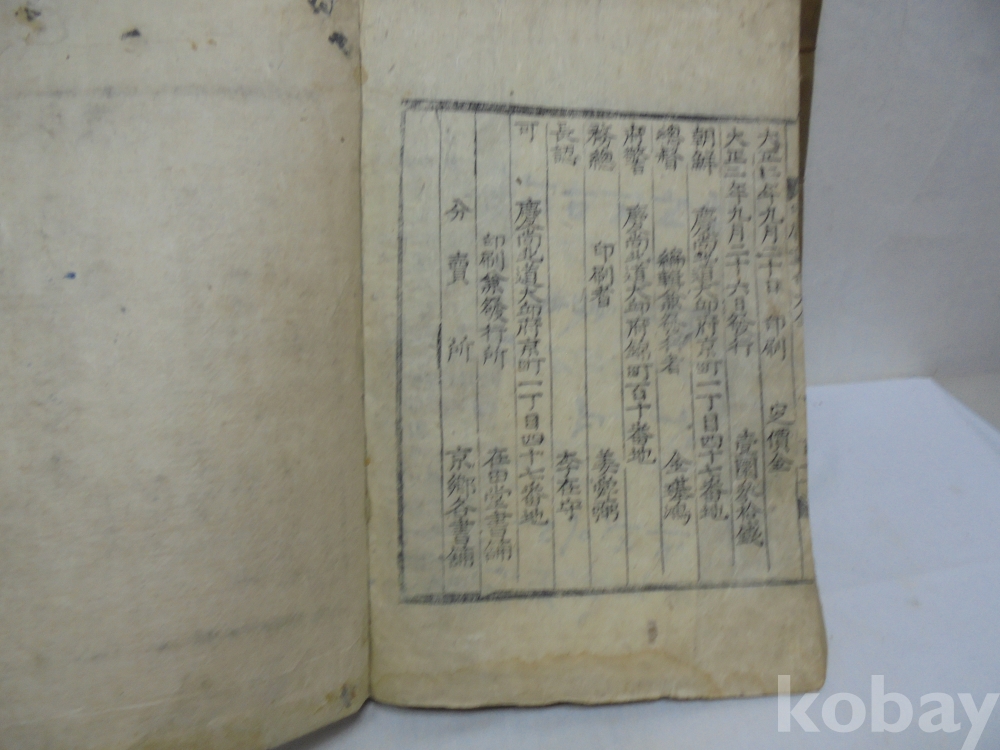 大正三年九月二十日 印刷 定價金
大正三年九月二十六日發行 壹圓
朝鮮 慶尚北道大邱府京町一丁目四十七番地
總督 編輯兼發行者 金璂鴻
府警 慶尚北道大邱府錦町百十番地
務總 印刷者 姜
長認 李在守
可 慶尚北道大邱府京町一丁目四十七番地
印刷兼發行所 在田堂書鋪
分賣所 京鄉各書鋪
kobay